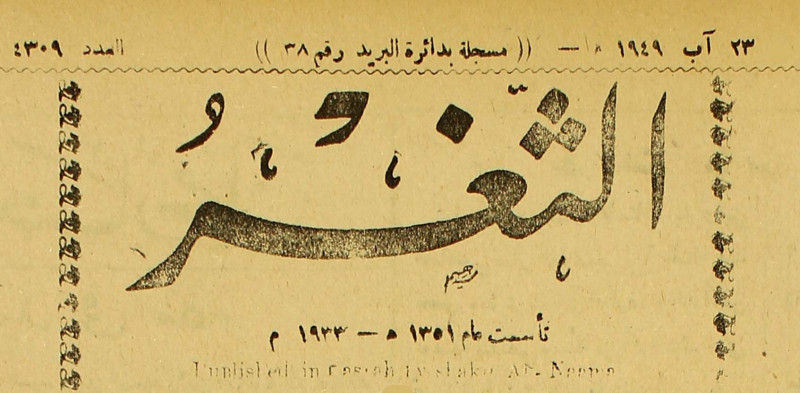 ٢٣ آب ١٩٤٩ — (( مسجلة بدائرة البريد رقم ٣٨ )) العدد ٤٣٠٩
الثغر
تأسست عام ١٣٥١ ه — ١٩٣٣ م
Published in Basrah by Shakir An-Neama